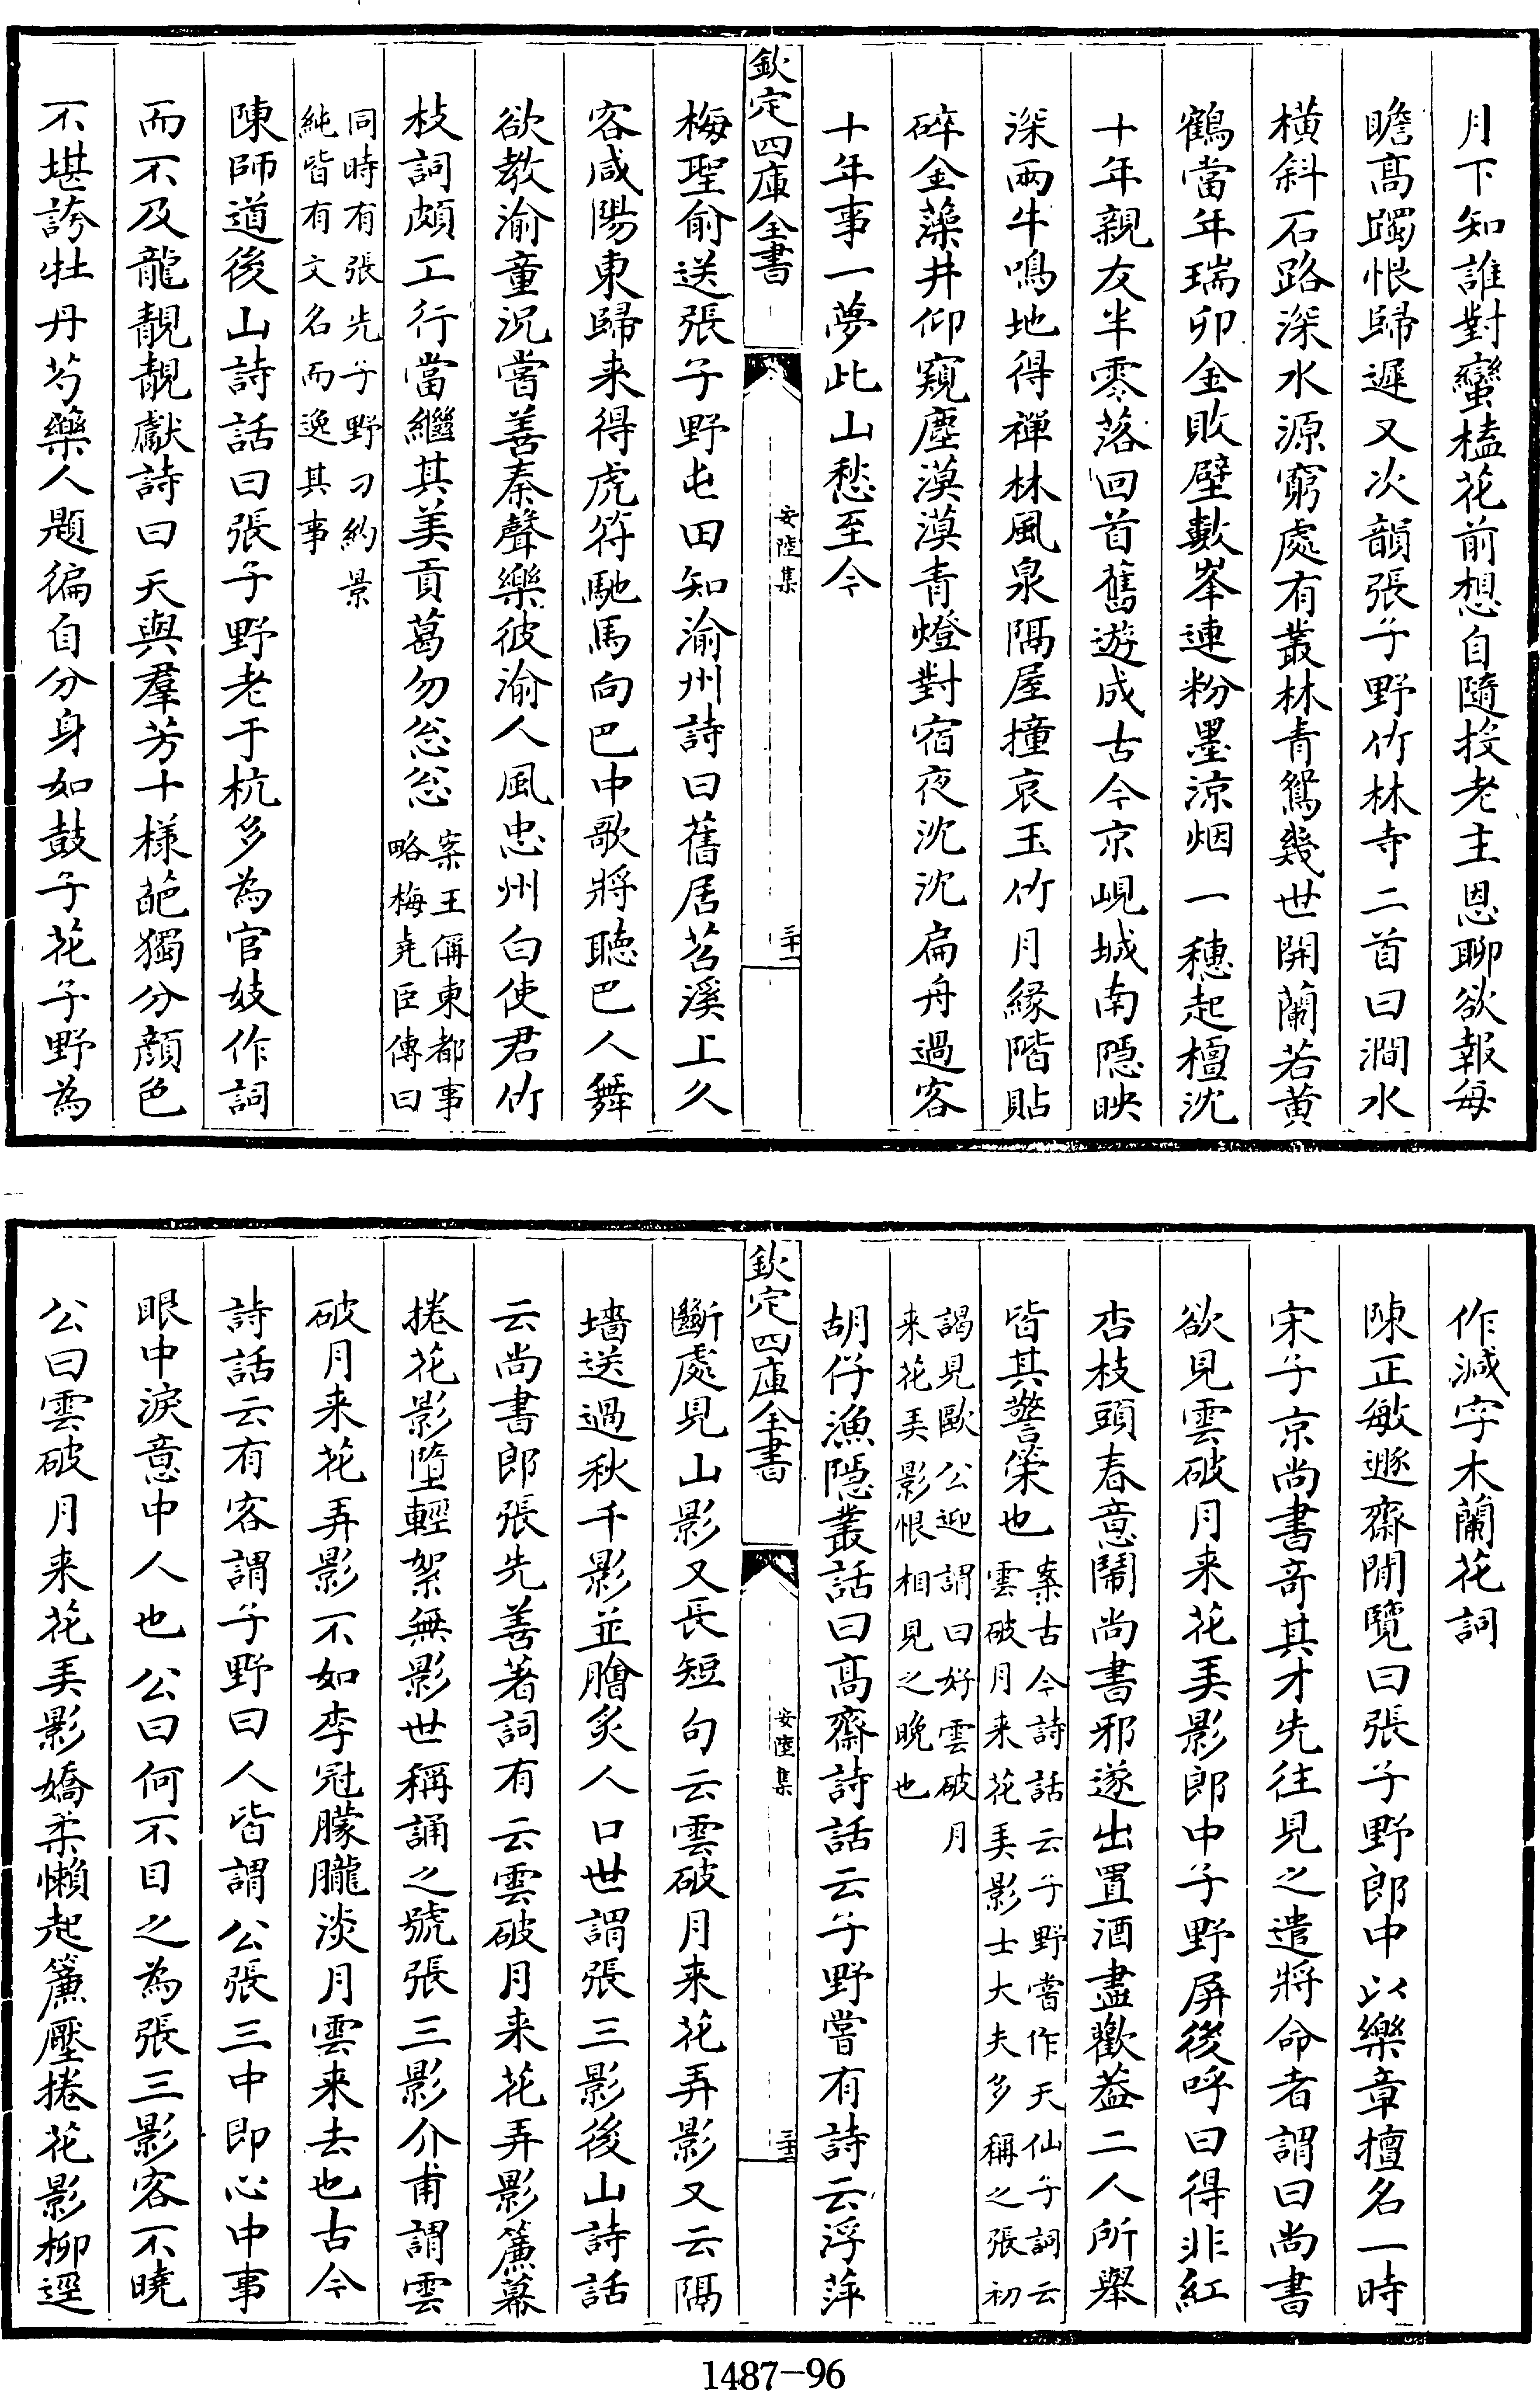 月下知誰對蠻榼花前想自隨投老主恩聊欲報每
瞻髙躅恨歸遲又次韻張子野竹林寺二首曰澗水
横斜石路深水源窮處有叢林青鴛幾世開蘭若黄
鶴當年瑞卯金敗壁數峯連粉墨涼烟一穗起檀沈
十年親友半零落回首舊遊成古今京峴城南隠映
深兩牛鳴地得禪林風泉隔屋撞哀玉竹月縁階貼
碎金藻井仰窺塵漠漠青燈對宿夜沈沈扁舟過客
十年事一夢此山愁至今
欽定四庫全書
安陸集
三十一
梅聖俞送張子野屯田知渝州詩曰舊居苕溪上久
客咸陽東歸来得虎符馳馬向巴中歌將聽巴人舞
欲教渝童況嘗善秦聲樂彼渝人風忠州白使君竹
枝詞頗工行當繼其美貢葛勿怱怱
案王偁東都事
略梅堯臣傳曰
同時有張先子野刁約景
純皆有文名而逸其事
陳師道後山詩話曰張子野老于杭多為官妓作詞
而不及龍靚靚獻詩曰天與羣芳十様葩獨分顔色
不堪誇牡丹芍藥人題徧自分身如鼓子花子野為
作減字木蘭花詞
陳正敏遯齋閒覽曰張子野郎中以樂章擅名一時
宋子京尚書竒其才先往見之遣將命者謂曰尚書
欲見雲破月来花弄影郎中子野屏後呼曰得非紅
杏枝頭春意鬧尚書邪遂出置酒盡歡葢二人所舉
皆其警䇿也
案古今詩話云子野嘗作天仙子詞云
雲破月来花弄影士大夫多稱之張初
謁見歐公迎謂曰好雲破月
来花弄影恨相見之晚也
胡仔漁隠叢話曰髙齋詩話云子野嘗有詩云浮萍
欽定四庫全書
安陸集
三十二
斷處見山影又長短句云雲破月来花弄影又云隔
墻送過秋千影並膾炙人口世謂張三影後山詩話
云尚書郎張先善著詞有云雲破月来花弄影簾幕
捲花影墮輕絮無影世稱誦之號張三影介甫謂雲
破月来花弄影不如李冠朦朧淡月雲来去也古今
詩話云有客謂子野曰人皆謂公張三中即心中事
眼中淚意中人也公曰何不目之為張三影客不曉
公曰雲破月来花弄影嬌柔懶起簾壓捲花影柳逕
1487-96